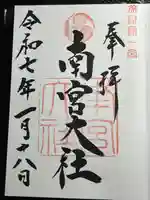 奉拝
南宮大社
令和七年一月十八日